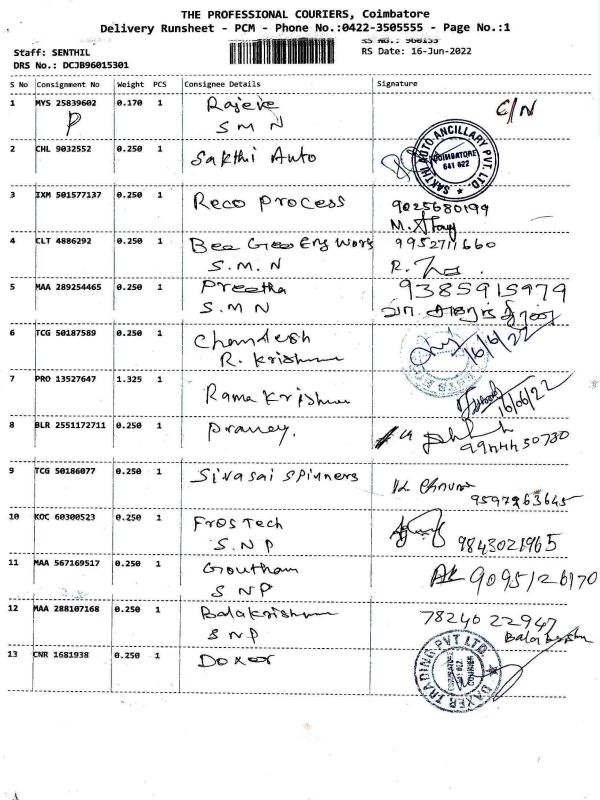 THE PROFESSIONAL COURIERS, Coimbatore
Delivery Runsheet - PCM - Phone No.:0422-3505555 - Page No.:1
Staff: SENTHIL
RS Date: 16-Jun-2022
DRS No.: DCJB96015301
S No Consignment No Weight PCS Consignee Details Signature
1 MYS 25839602 0.170 1 Rajeve C/N
P S M N
2 CHL 9032552 0.250 1 Sakthi Auto
SAKTHI AUTO ANCILLARY PVT. LTD.
COIMBATORE
641 022
3 IXM 501577137 0.250 1 Reco Process 9025680199
4 CLT 4886292 0.250 1 Bee Geo Eng Work 9952711660
S.M.N
5 MAA 289254465 0.250 1 Preetha 9385915979
S.M N
6 TCG 50187589 0.250 1 Chandesh
R. Krishnan 16/6/22
7 PRO 13527647 1.325 1 Rama Krishnan 16/06/22
8 BLR 2551172711 0.250 1 Praney. 9944450730
9 TCG 50186077 0.250 1 Sivasai Spinners
9597263645
10 KOC 60300523 0.250 1 Fros Tech
S.N P 9843021965
11 MAA 567169517 0.250 1 Goutham 9095126170
S NP
12 MAA 288107168 0.250 1 Balakrishnan 7824022947
S NP
13 CNR 1681938 0.250 1 Doxer
DAXER TRADING PVT LTD.